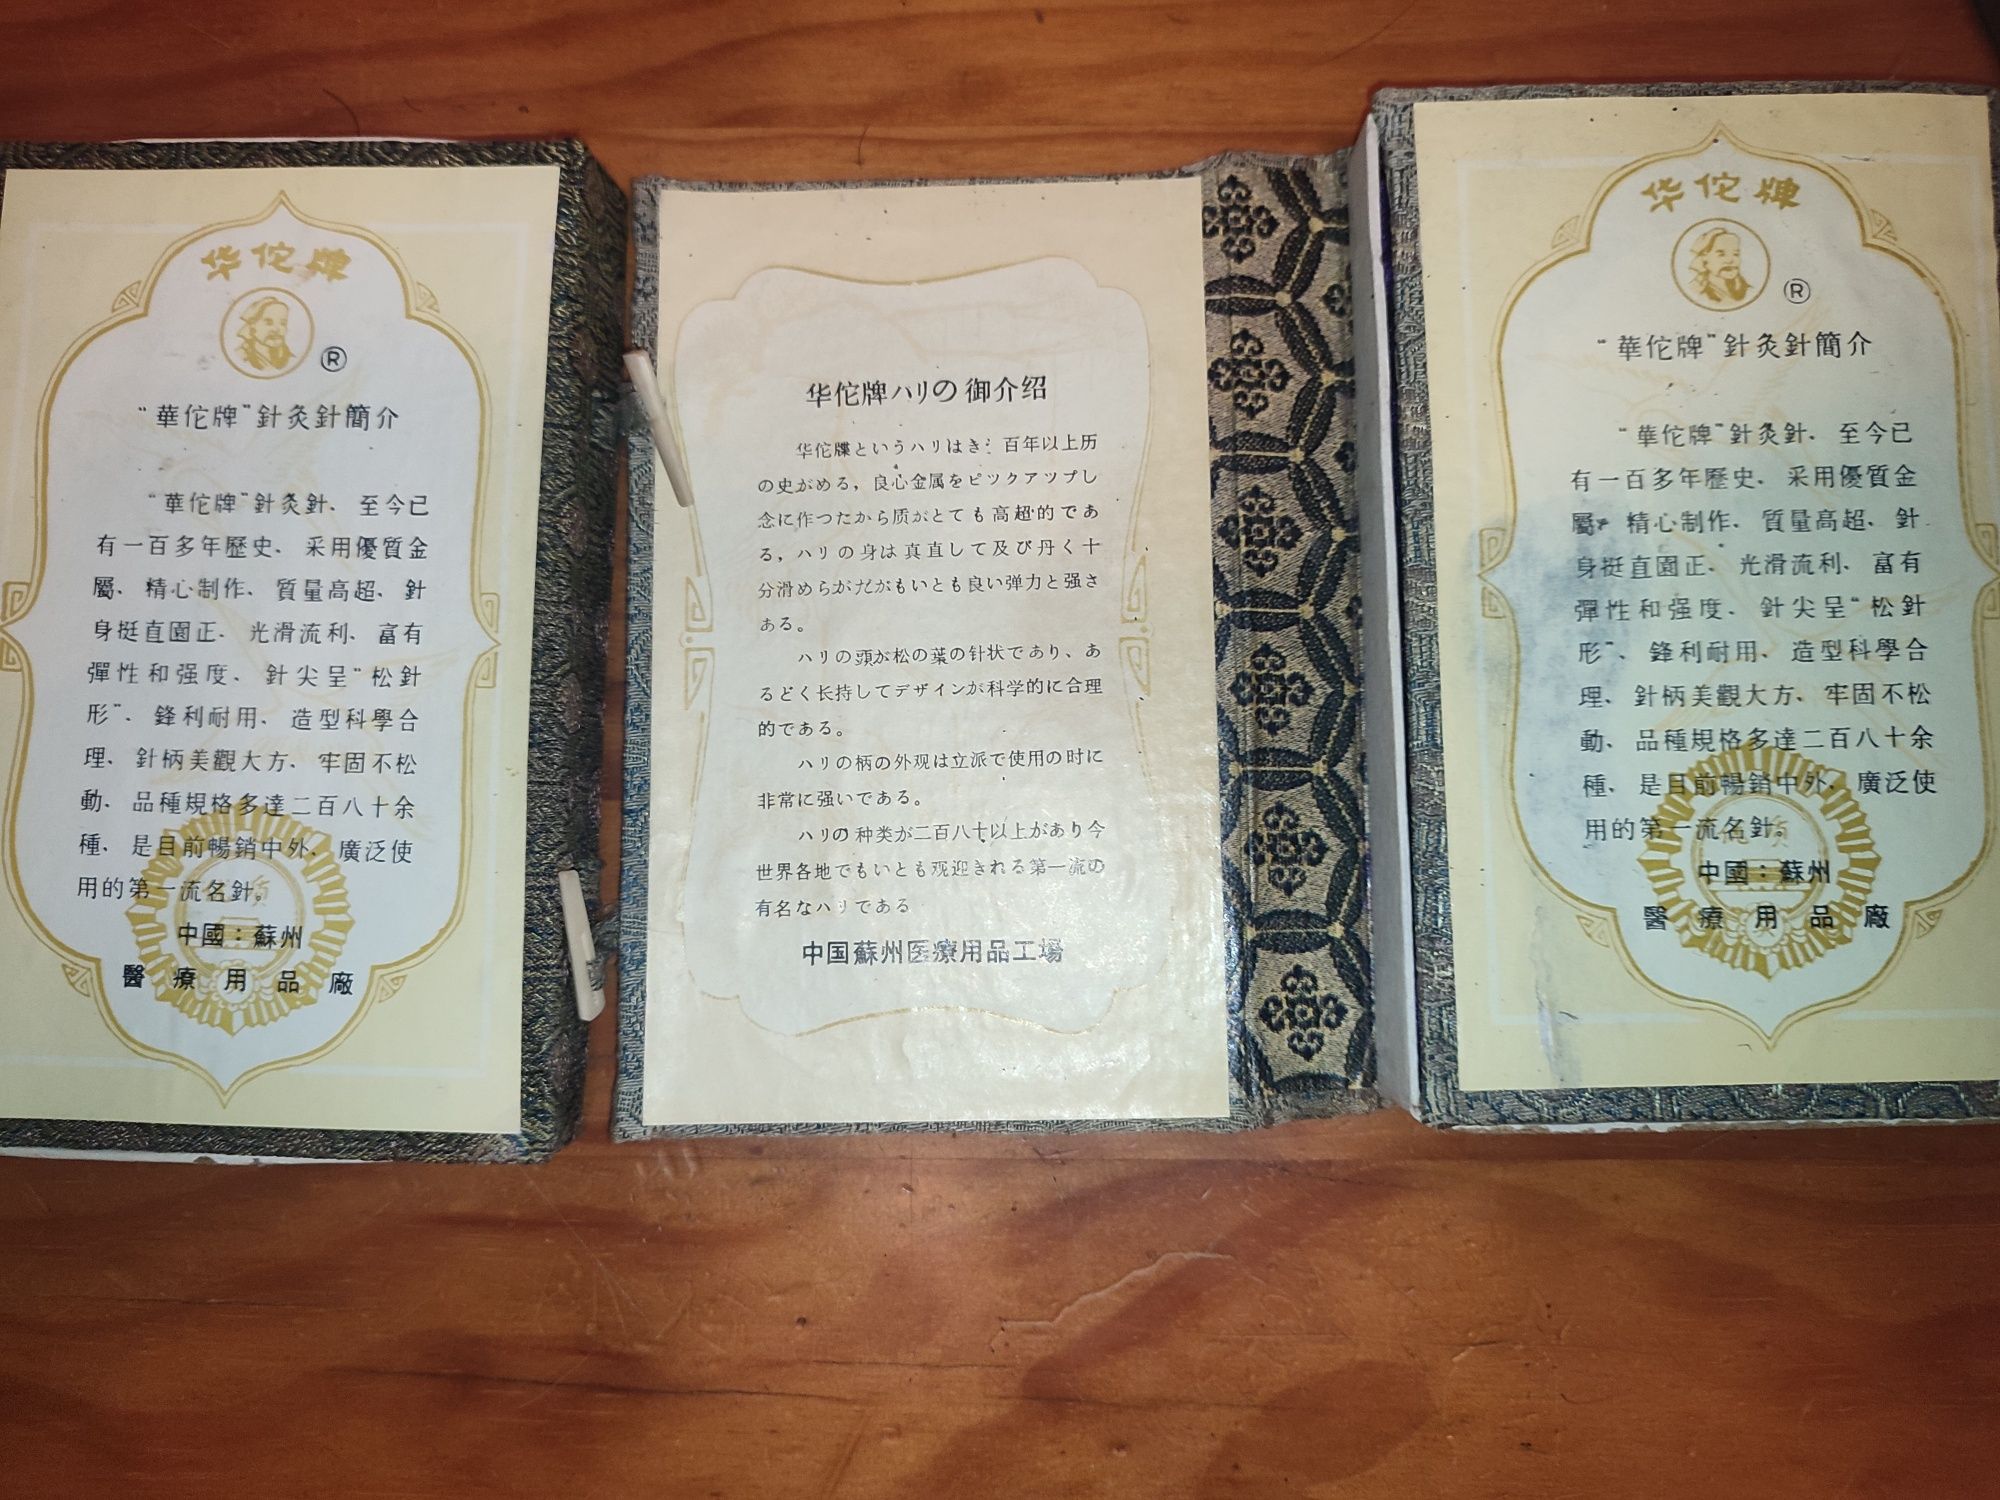 华佗牌
®
“華佗牌”針灸針簡介
“華佗牌”針灸針、至今已
有一百多年歷史、采用優質金
屬、精心制作、質量高超、針
身挺直圓正、光滑流利、富有
彈性和强度、針尖呈“松針
形”、鋒利耐用、造型科學合
理、針柄美觀大方、牢固不松
動、品種規格多達二百八十余
種、是目前暢銷中外、廣泛使
用的第一流名針。
中國：蘇州
醫療用品廠
华佗牌ハリの御介绍
华佗牒というハリはき: 百年以上历
の史がめる，良心金属をピツクアツプし
念に作つたから质がとても高超的であ
る，ハリの身は真直して及び丹く十
分滑めらがだがもいとも良い弾力と强さ
ある。
ハリの頭が松の葉の针状であり、あ
るどく长持してデザインが科学的に合理
的である。
ハリの柄の外观は立派で使用の时に
非常に强いである。
ハリの种类が二百八十以上があり今
世界各地でもいとも观迎きれる第一流の
有名なハリである
中国蘇州医療用品工場
华佗牌
®
“華佗牌”針灸針簡介
“華佗牌”針灸針、至今已
有一百多年歷史、采用優質金
屬、精心制作、質量高超、針
身挺直圓正、光滑流利、富有
彈性和强度、針尖呈“松針
形”、鋒利耐用、造型科學合
理、針柄美觀大方、牢固不松
動、品種規格多達二百八十余
種、是目前暢銷中外、廣泛使
用的第一流名針。
中國：蘇州
醫療用品廠